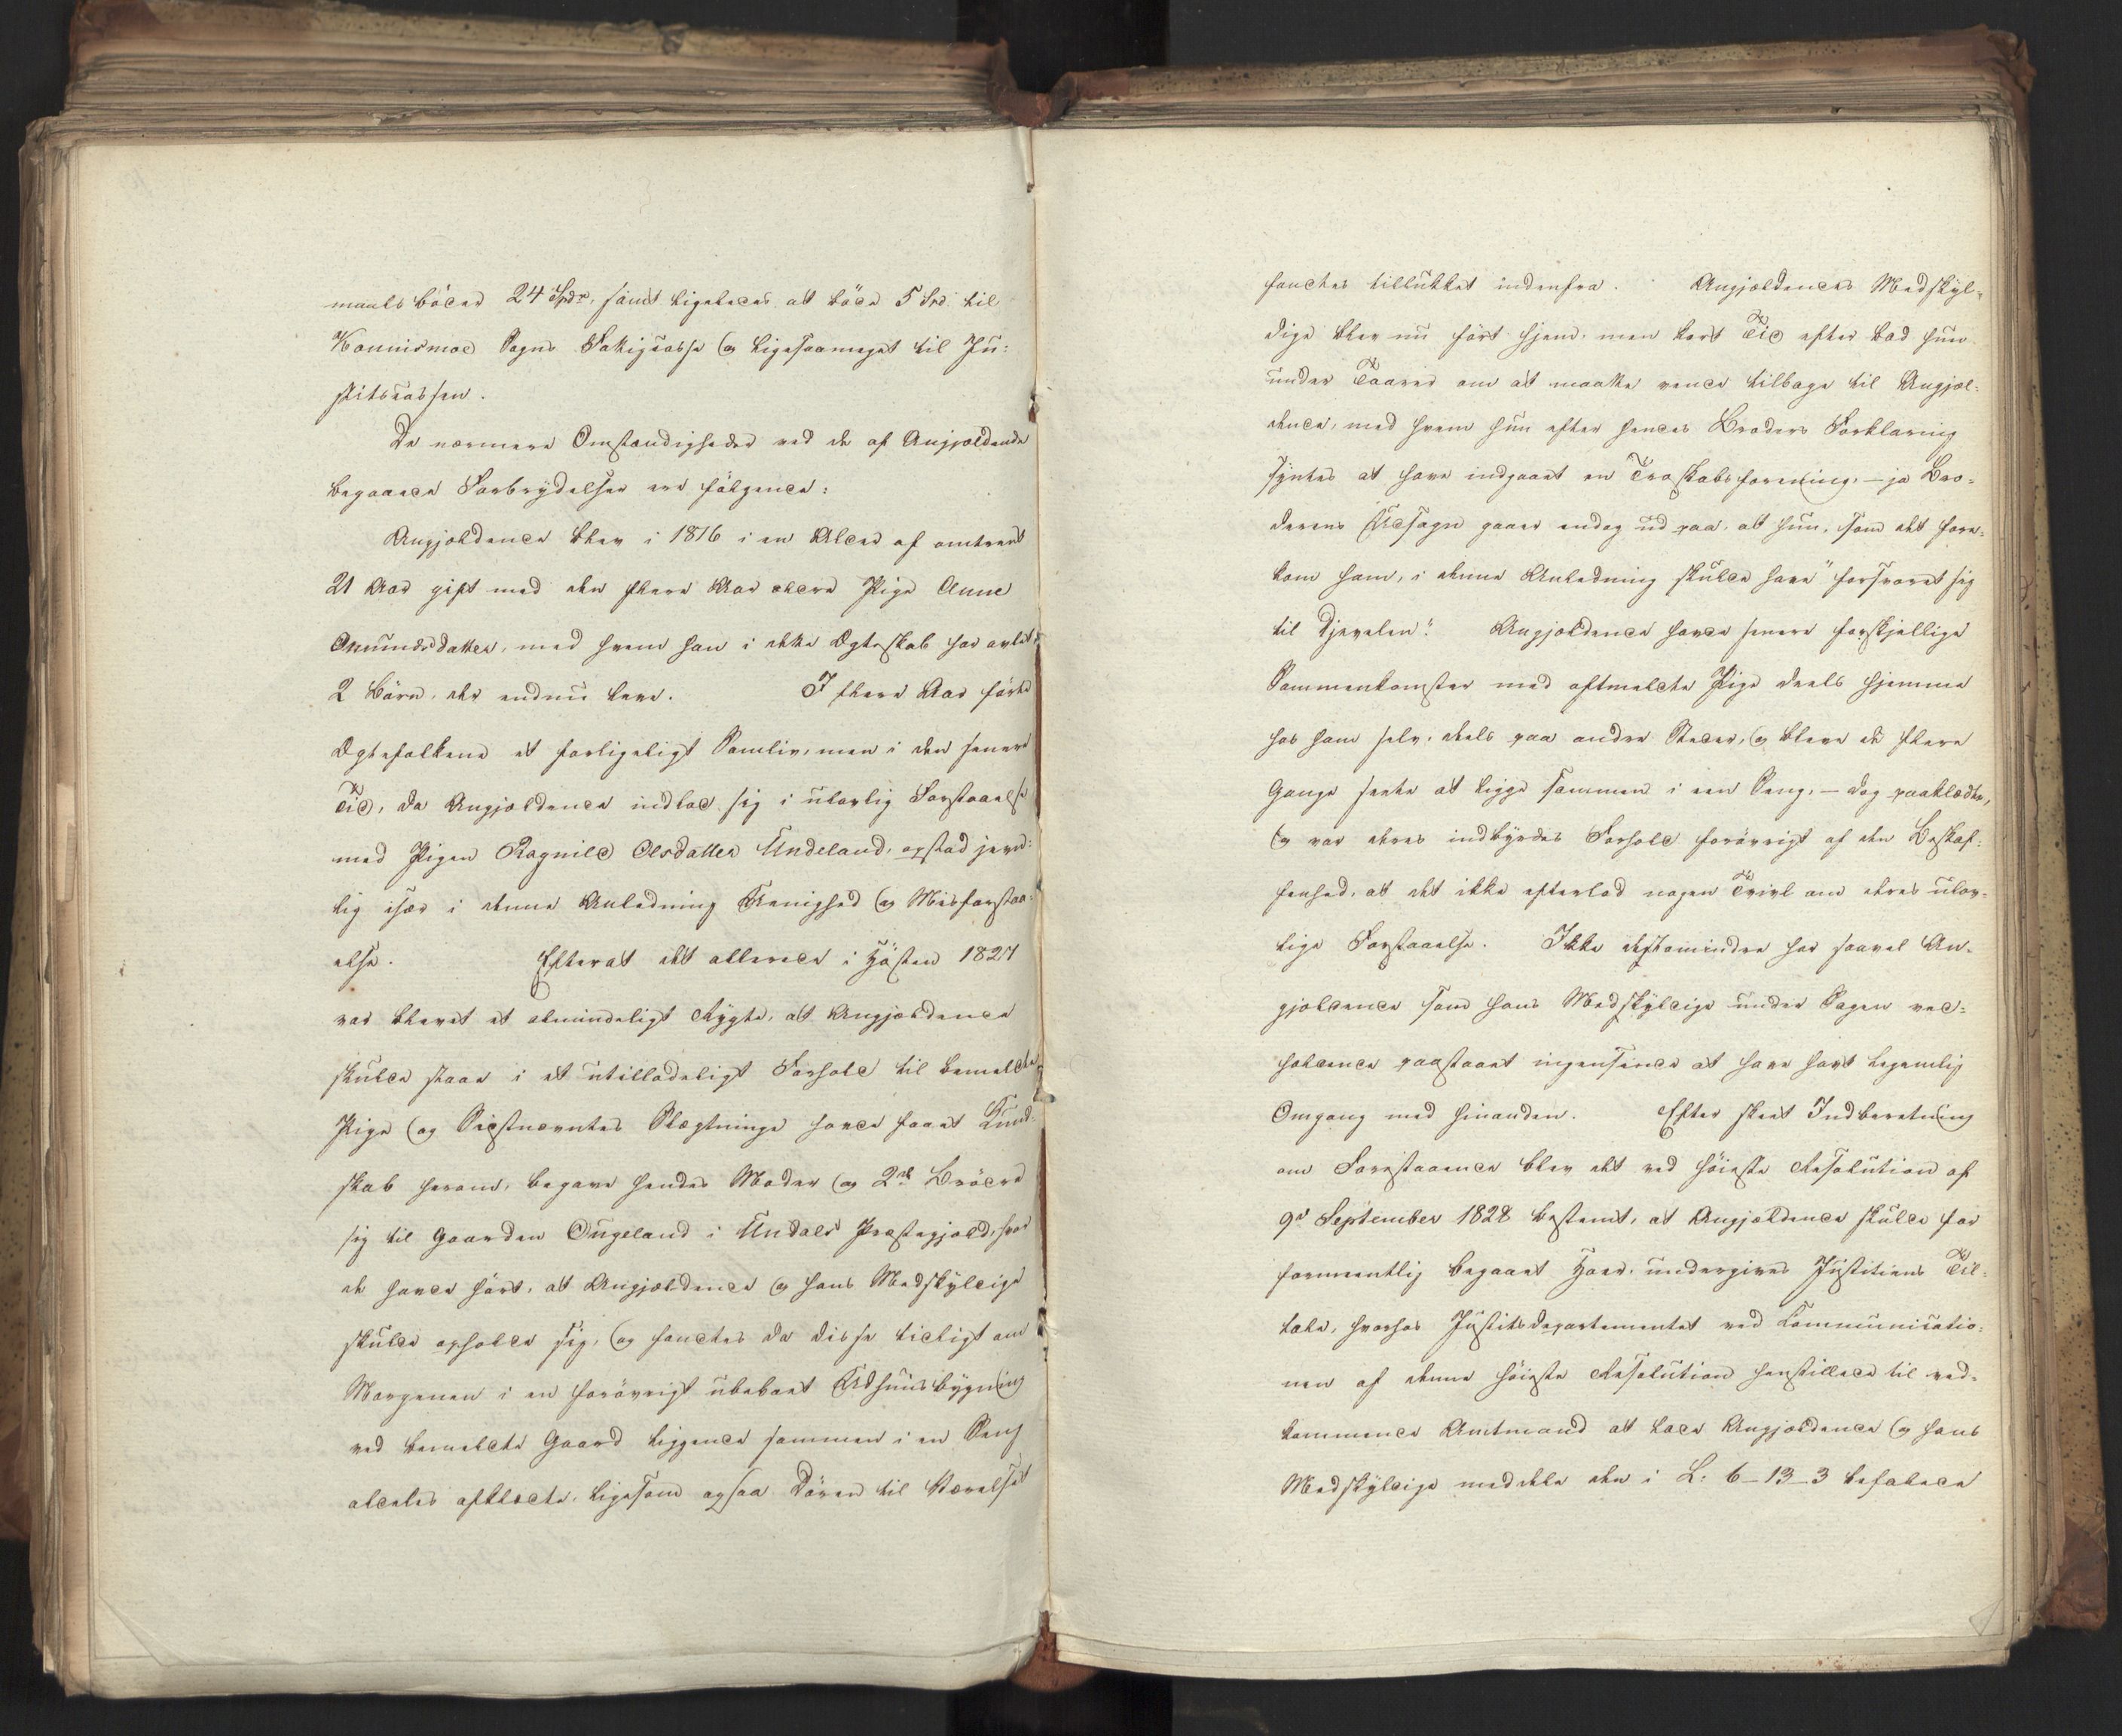 maals böder 24 Spdr, samt ligeledes at böde 5 Spd til
Konnismoe Sogns Fattigcasse og ligesaameget til Ju-
stitscassen.
De nærmere Omstændigheder ved de af Angjældende
begaaede Forbrydelser ere fölgende:
Angjeldende blev i 1816 i en Alder af omtrent
21 Aar gift med den flere Aar eldre Pige Anne
Omundsdatter, med hvem han i dette Ægteskab har avlet
2 Börn, der endnu leve. I flere Aar förte
Ægtefolkene et forligeligt Samliv, men i den senere
Tid, da Angjældende indlod sig i ulovlig Forstaaelse
med Pigen Ragnild Olsdatter Undeland, opstod jevn-
lig især i denne Anledning Uenighed og Misforstaa-
else. Efterat det allerede i Hösten 1827
var blevet et almindeligt Rygte, at Angjældende
skulde staae i et utilladeligt Forhold til bemeldte
Pige og Sidstnævntes Slægtninge havde faaet Kund-
skab herom, begave hendes Moder og 2de Brödre
sig til Gaarden Ougeland i Undals Præstegjæld, hvor
de havde hört, at Angjældende og hans Medskyldige
skulde opholde sig, og fandtes da disse tidligt om
Morgenen i en forövrigt ubeboet Udhuusbygning
ved bemeldte Gaard liggende sammen i en Seng
aldeles afklædte, ligesom ogsaa Dören til Værelset
fandtes tillukket indenfra. Angjældendes Medskyl-
dige blev nu fört hjem, men kort Tid efter bad hun
under Taarer om at maatte vende tilbage til Angjæl-
dende, med hvem hun efter hendes Broders Forklaring
syntes at have indgaaet en Troskabsforening, – ja Bro-
derens Udsagn gaaer endog ud paa, at hun, som det fore-
kom ham, i denne Anledning skulde have "forsvoret sig
til Djevelen". Angjældende havde senere forskjellige
Sammenkomster med oftmeldte Pige deels hjemme
hos ham selv, deels paa andre Steder, og bleve de flere
Gange seete at ligge sammen i een Seng, – dog paaklædte,
og var deres indbyrdes Forhold forövrigt af den Beskaf-
fenhed, at det ikke efterlod nogen Tvivl om deres ulov-
lige Forstaaelse. Ikke destomindre har saavel An-
gjældende som hans Medskyldige under Sagen ved-
holdende paastaaet ingensinde at have havt legemlig
Omgang med hinanden. Efter skeet Indberetning
om Forestaaende blev det ved höieste Resolution af
9de September 1828 bestemt, at Angjældende skulde for
formeentlig begaaet Hoer, undergives Justitiens Til-
tale, hvorhos Justitsdepartementet ved Communicatio-
nen af denne höieste Resolution henstillede til ved-
kommende Amtmand at lade Angjældende og hans
Medskyldige meddele den i L: 6–13–3 befalede